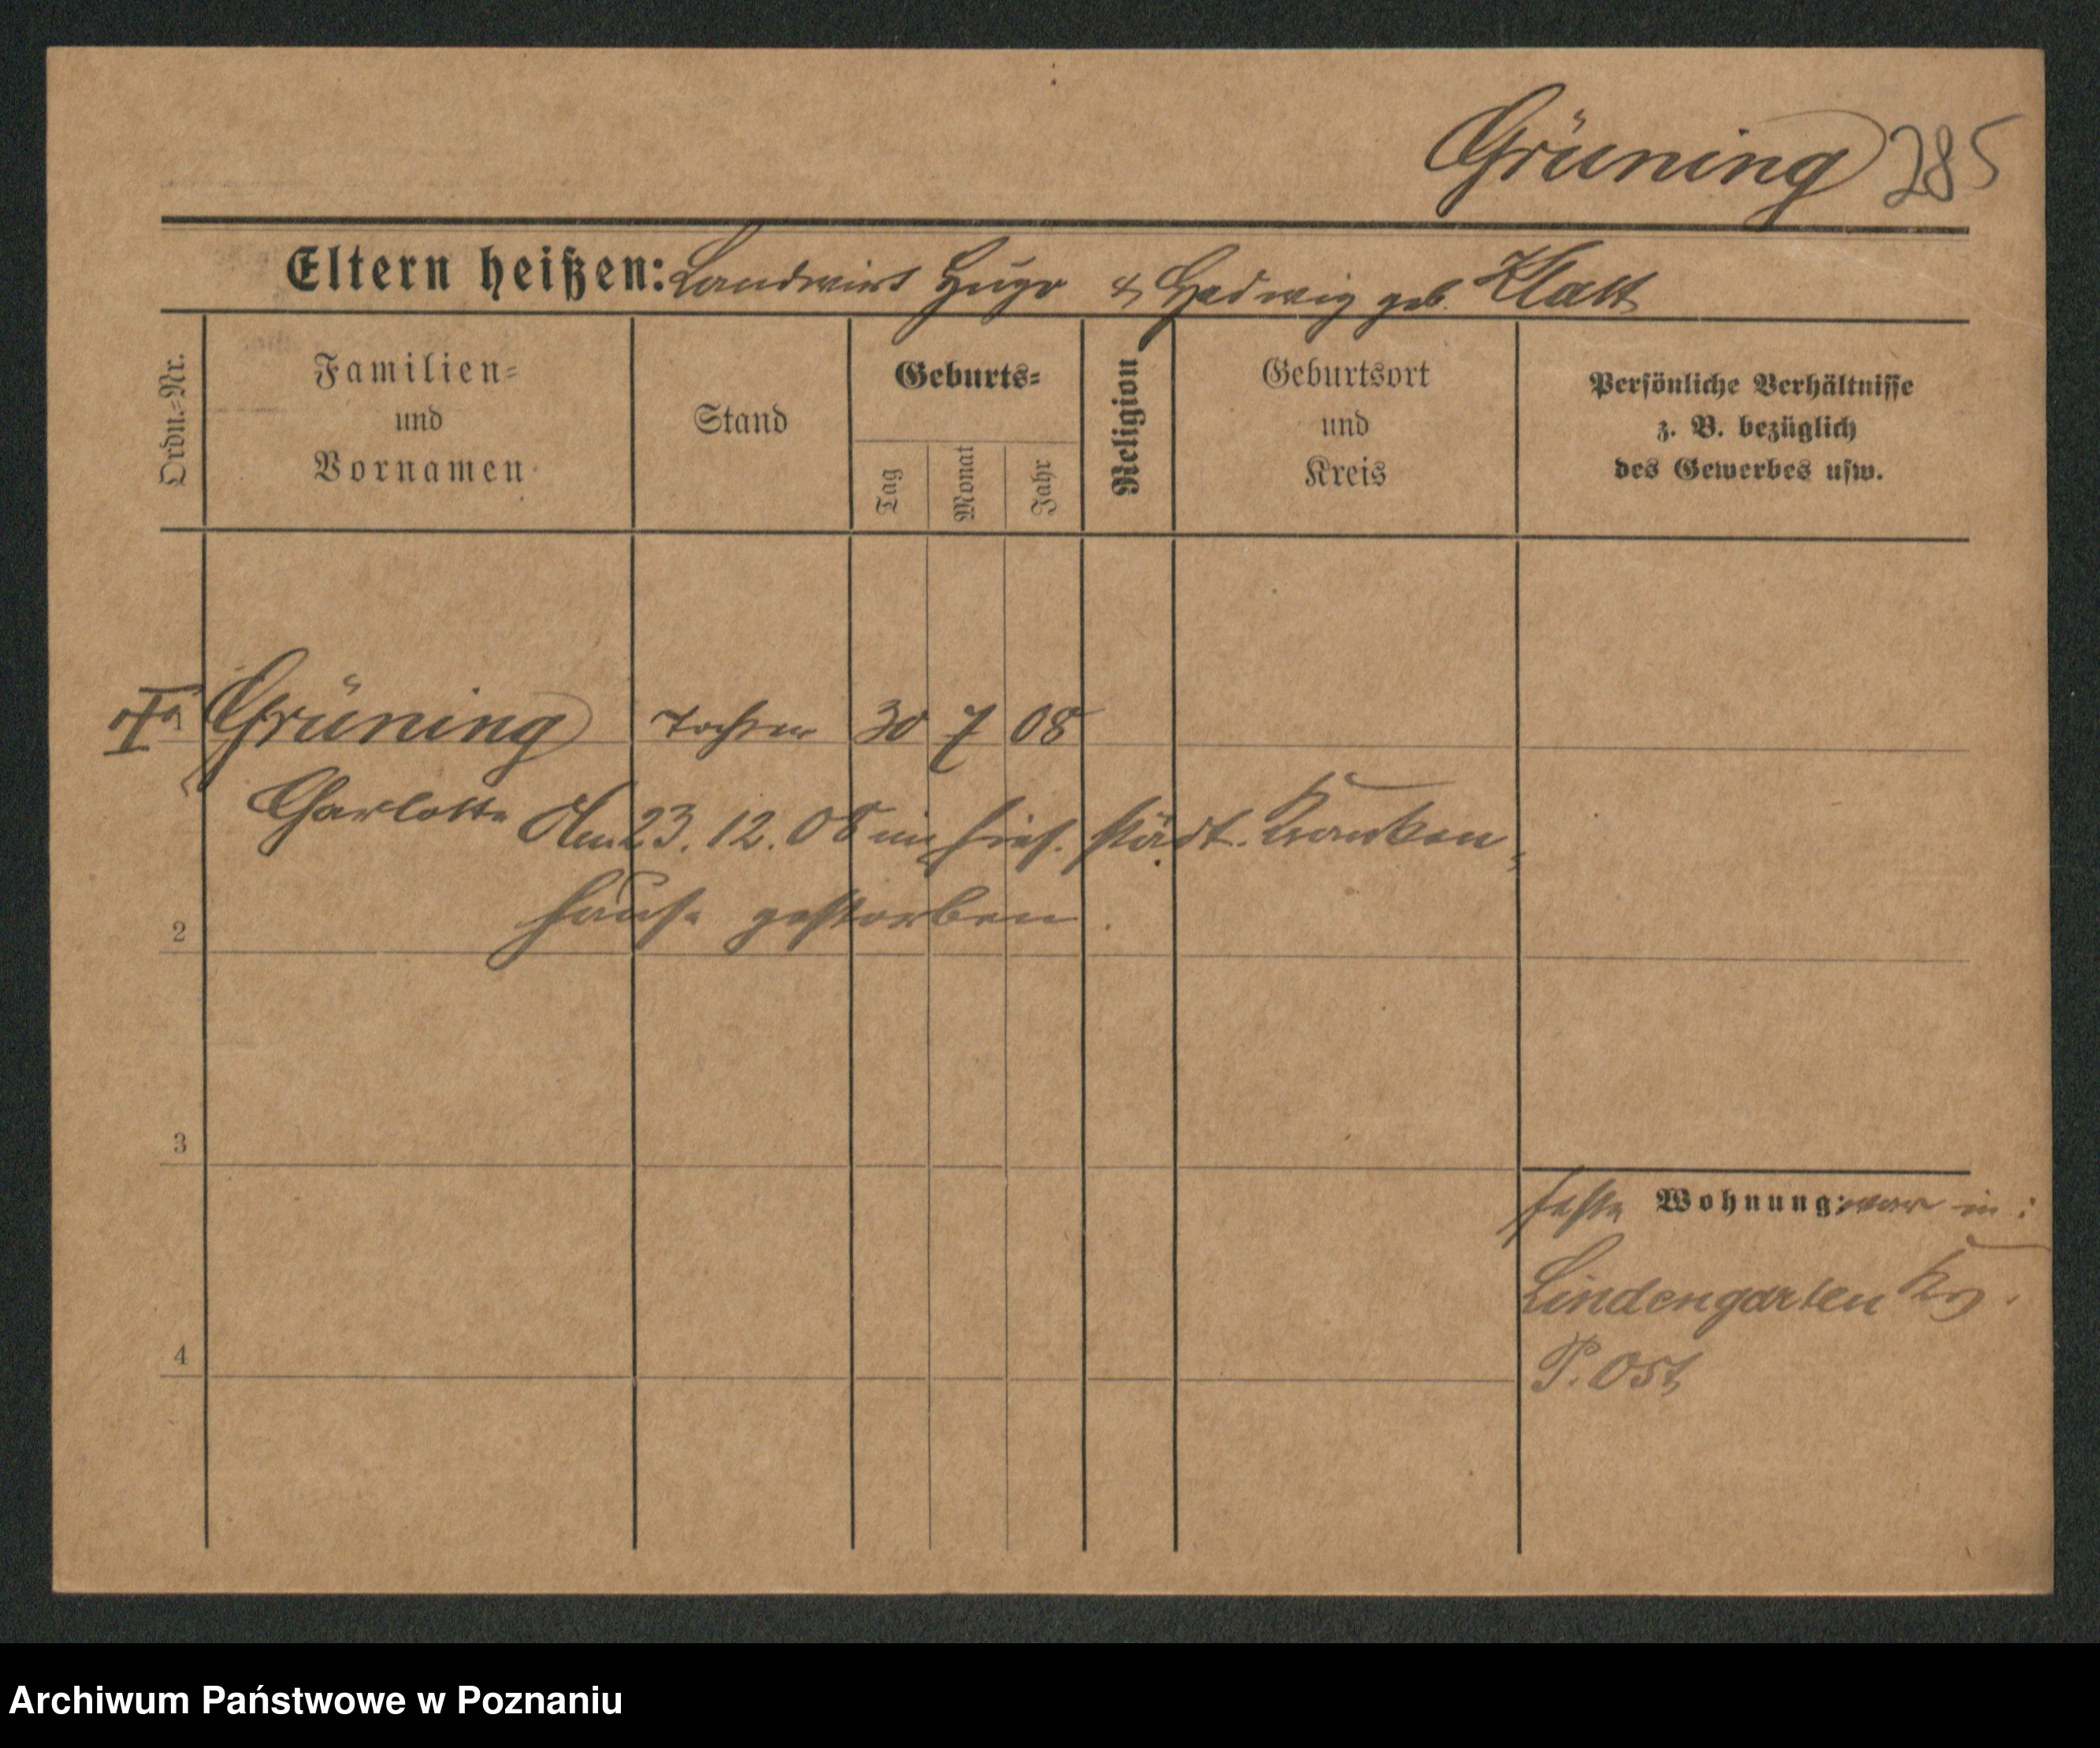 Grüning 285
Eltern heißen: Landwirt Hugo & Hedwig geb. Klatt
Ordn.-Nr.
Familien-
und
Vornamen
Stand
Geburts-
Tag
Monat
Jahr
Religion
Geburtsort
und
Kreis
Persönliche Verhältnisse
z. B. bezüglich
des Gewerbes usw.
Grüning Tochter 30 7 08
Charlotte Am 23. 12. 08 im hies. städt. Kranken-
hause gestorben.
2
3
feste Wohnung: war in:
Lindengarten Krs.
P. Ost
4
Archiwum Państwowe w Poznaniu